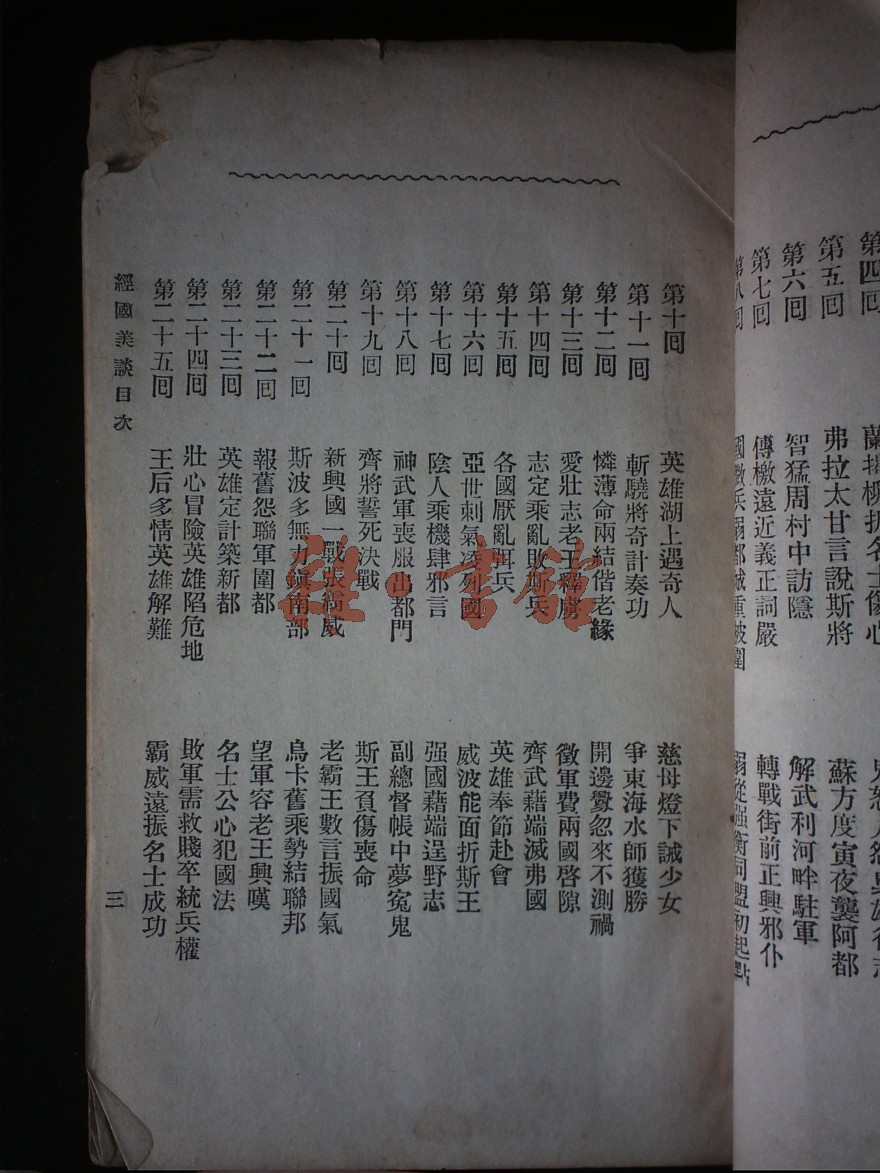 第四回
第五回 弗拉太甘言說斯將 蘇方度寅夜襲阿都
第六回 智猛周村中訪隱 解武利河畔駐軍
第七回 傳檄遠近義正詞嚴 轉戰街前正興邪仆
第十回 英雄湖上遇奇人 慈母燈下誡少女
第十一回 斬驍將奇計奏功 爭東海水師獲勝
第十二回 憐薄命兩結偕老緣 開邊釁忽來不測禍
第十三回 愛壯志老王釋虜 徵軍費兩國啓隙
第十四回 志定乘亂敗斯兵 齊武藉端滅弗國
第十五回 各國厭亂弭兵 英雄奉節赴會
第十六回 亞世刺氣凌列國 威波能面折斯王
第十七回 陰人乘機肆邪言 强國藉端逞野志
第十八回 神武軍喪服出都門 副總督帳中夢冤鬼
第十九回 齊將誓死決戰 斯王負傷喪命
第二十回 新興國一戰張衡威 老霸王數言振國氣
第二十一回 斯波多無力鎭南部 烏卡舊乘勢結聯邦
第二十二回 報舊怨聯軍圍都 望軍容老王興嘆
第二十三回 英雄定計築新都 名士公心犯國法
第二十四回 壯心冒險英雄陷危地 敗軍需救賤卒統兵權
第二十五回 王后多情英雄解難 霸威遠振名士成功
經國美談目次 三
雜·書館